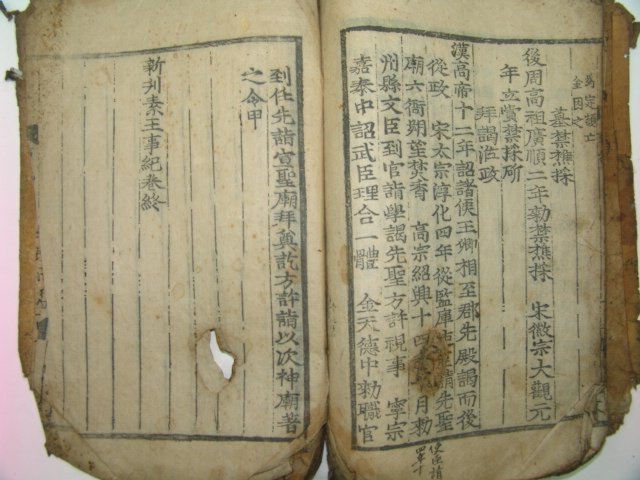 為定議亡
金因之
墓禁樵採
後周高祖廣順二年勅禁樵採　宋徽宗大觀元
年立賞禁採斫
拜謁涖政
漢高帝十二年詔諸侯王卿相至郡先殿謁而後
從政　宋太宗淳化四年從監庫使請先聖
廟六衙朔望焚香　高宗紹興十四年月勅
州縣文臣到官詣學謁先聖方許視事　寧宗
嘉泰中詔武臣理合一體　金天德中勅職官
到任先詣宣聖廟拜奠訖方許詣以次神廟著
之令甲
新刊素王事紀卷終